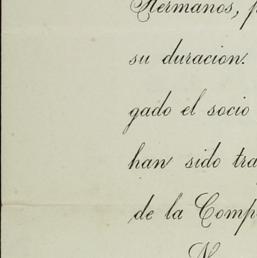 Hermanos,
su duracion.
gado el socio
han sido tra
de la Comp